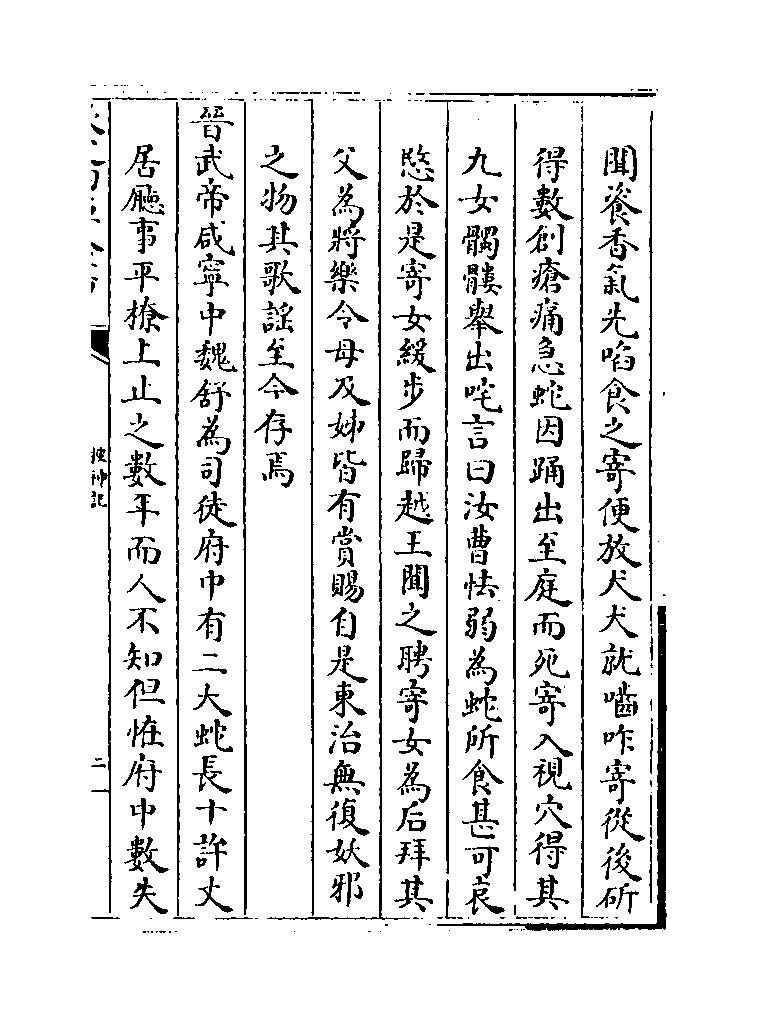 聞餈香氣先啗食之寄便放犬犬就嚙咋寄從後斫
得數創瘡痛急蛇因踊出至庭而死寄入視穴得其
九女髑髏舉出咤言曰汝曹怯弱為蛇所食甚可哀
愍於是寄女緩步而歸越王聞之聘寄女為后拜其
父為將樂令母及姊皆有賞賜自是東治無復妖邪
之物其歌謡至今存焉
晉武帝咸寧中魏舒為司徒府中有二大蛇長十許丈
居廳事平橑上止之數年而人不知但恠府中數失
搜神記
二一